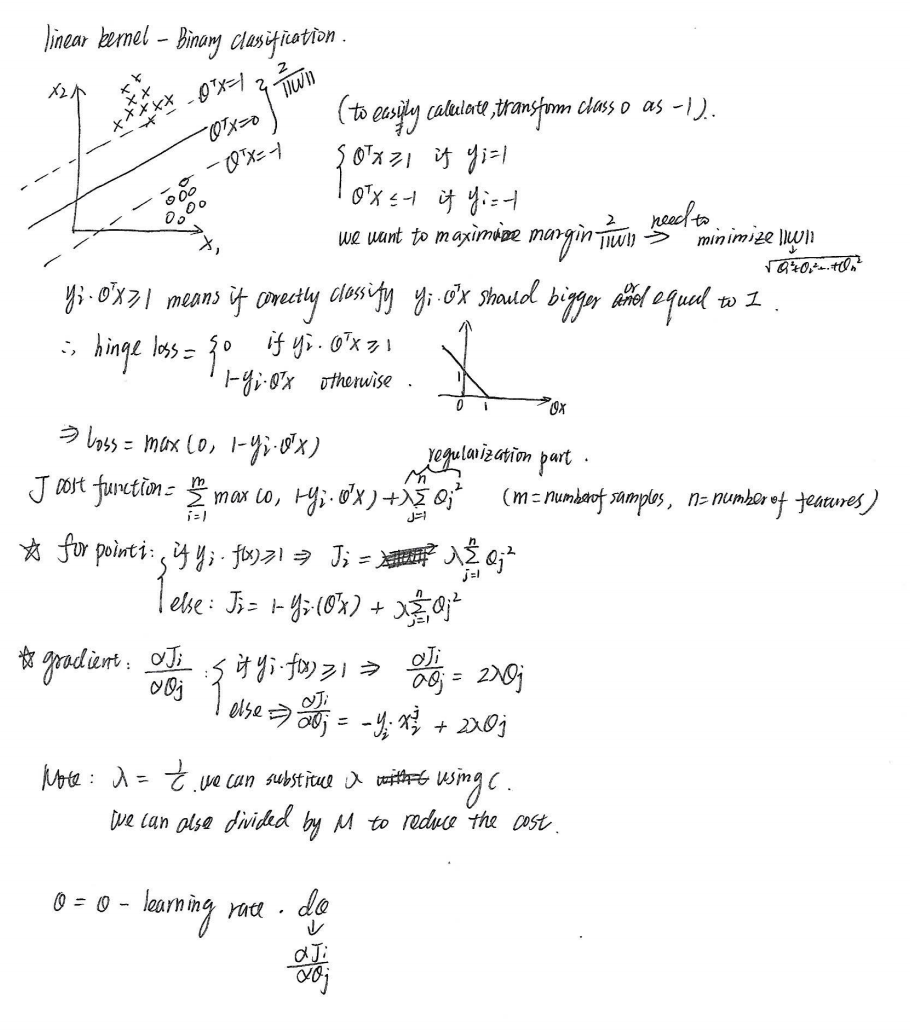 linear kernel – Binary classification.
x2
θᵀx=1
2/||w||
θᵀx=0
θᵀx=-1
x1
(to easily calculate, transform class 0 as -1).
{ θᵀx ≥ 1 if yi=1
θᵀx ≤ -1 if yi=-1
we want to maximize margin 2/||w|| ⇒ need to minimize ||w||
√θ1²+θ2²+...+θn²
yi·θᵀx ≥ 1 means if correctly classify yi·θᵀx should bigger or equal to 1.
∴ hinge loss = { 0 if yi·θᵀx ≥ 1
1-yi·θᵀx otherwise.
1
0 1 θx
⇒ Loss = max(0, 1-yi·θᵀx)
regularization part.
J cost function = Σ_{i=1}^{m} max(0, 1-yi·θᵀx) + λ Σ_{j=1}^{n} θj² (m = number of samples, n = number of features)
☆ for point i: { if yi·f(x) ≥ 1 ⇒ Ji = λ Σ_{j=1}^{n} θj²
else: Ji = 1-yi·(θᵀx) + λ Σ_{j=1}^{n} θj²
☆ gradient: ∂Ji/∂θj : { if yi·f(x) ≥ 1 ⇒ ∂Ji/∂θj = 2λθj
else ⇒ ∂Ji/∂θj = -yi·xi^j + 2λθj
Note: λ = 1/C we can substitue λ using C.
We can also divided by M to reduce the cost.
θ = θ – learning rate · dθ
↓
∂Ji/∂θj